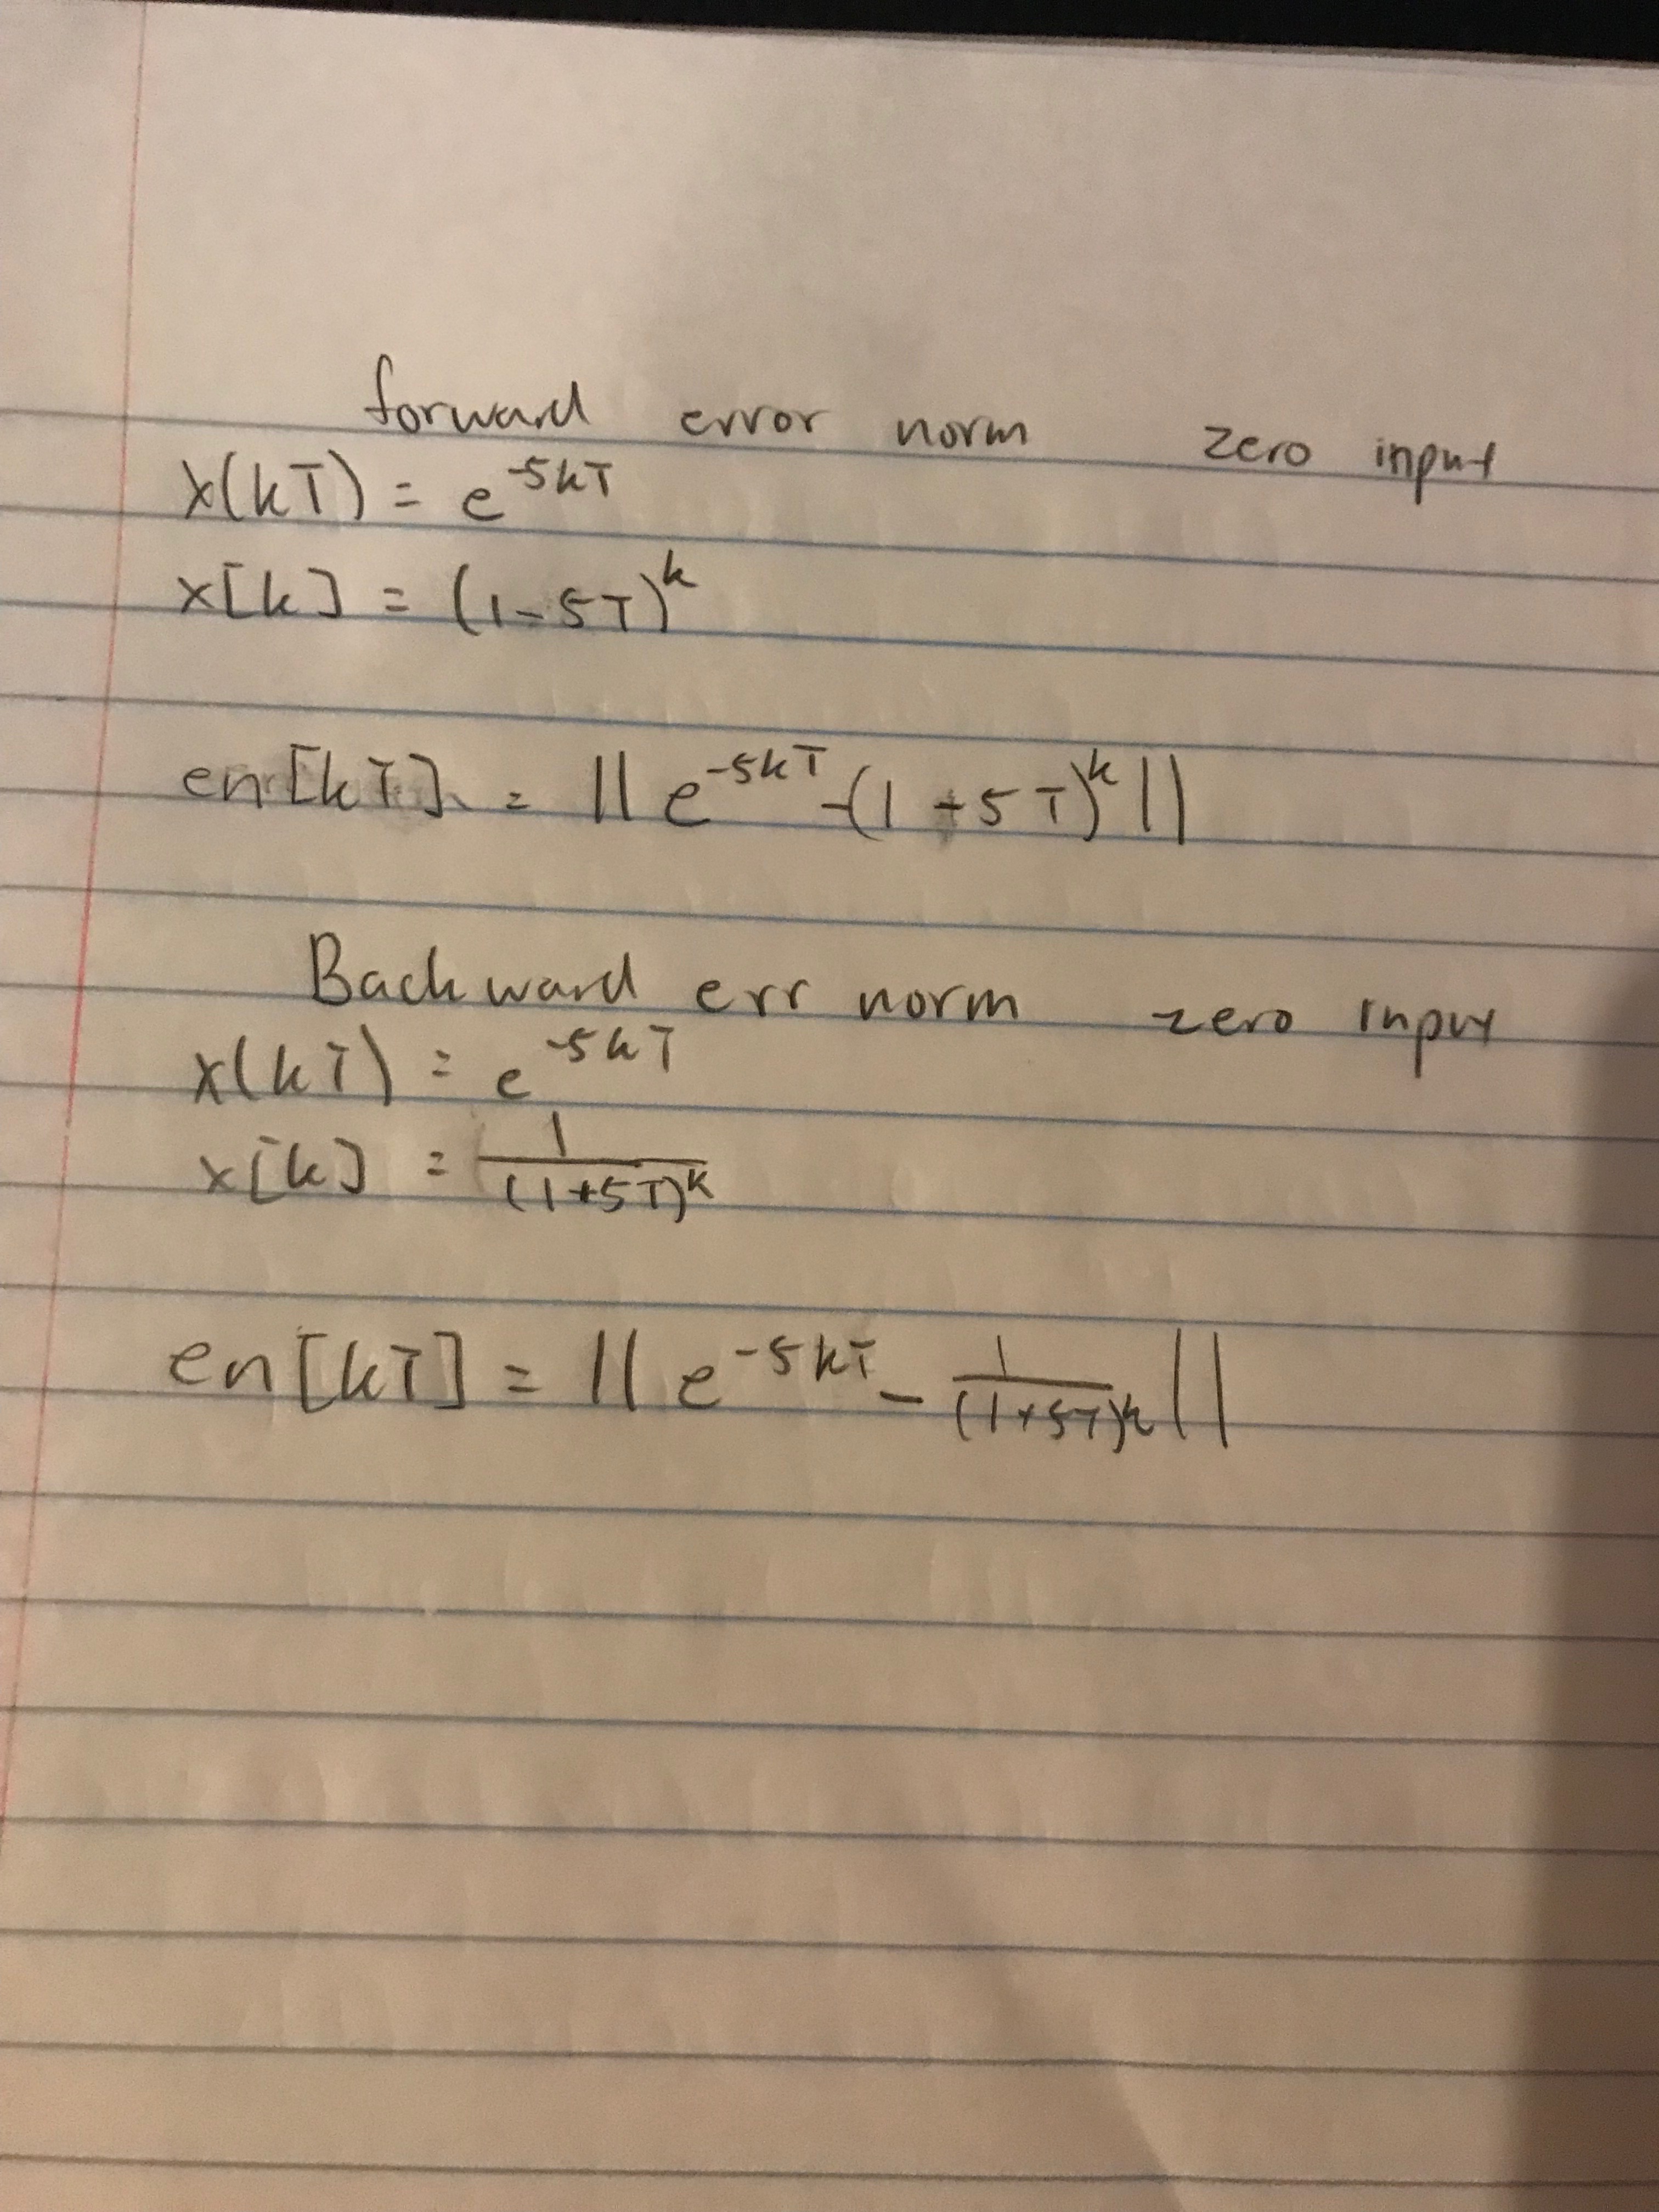 forward error norm zero input
x(kT) = e^-5kT
x[k] = (1-5T)^k
en[kT] = ||e^-5kT -(1+5T)^k||
Backward err norm zero input
x(kT) = e^-5kT
x[k] = 1/(1+5T)^k
en[kT] = ||e^-5kT - 1/(1+5T)^k||